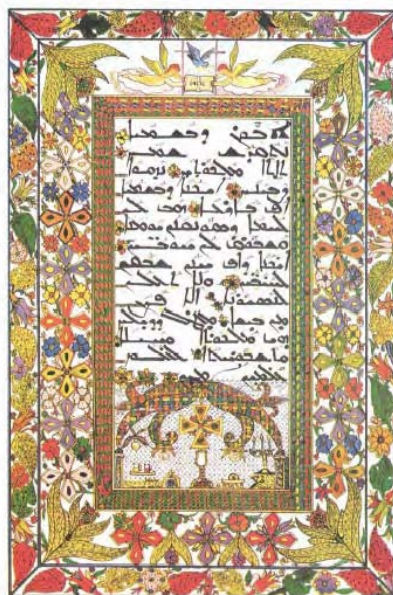 ܐܒܘܢ ܕܒܫܡܝܐ
ܢܬܩܕܫ ܫܡܟ
ܬܐܬܐ ܡܠܟܘܬܟ ܢܗܘܐ
ܨܒܝܢܟ ܐܝܟܢܐ ܕܒܫܡܝܐ
ܐܦ ܒܐܪܥܐ ܗܒ ܠܢ
ܠܚܡܐ ܕܣܘܢܩܢܢ ܝܘܡܢܐ
ܘܫܒܘܩ ܠܢ ܚܘܒܝܢ
ܐܝܟܢܐ ܕܐܦ ܚܢܢ ܫܒܩܢ
ܠܚܝܒܝܢ ܘܠܐ ܬܥܠܢ
ܠܢܣܝܘܢܐ ܐܠܐ ܦܨܢ
ܡܢ ܒܝܫܐ ܡܛܠ ܕܕܝܠܟ
ܗܝ ܡܠܟܘܬܐ ܘܚܝܠܐ
ܘܬܫܒܘܚܬܐ ܠܥܠܡ
ܥܠܡܝܢ